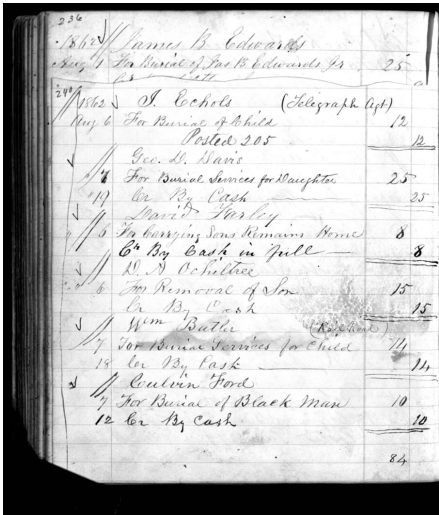 236
1862 James B. Edwards
Aug 1 For Burial of Jas B Edwards Jr 25
240
1862 J. Echols (Telegraph Agt)
Aug 6 For Burial of Child 12
Posted 205 12
Geo. D. Davis
For Burial Services for Daughter 25
19 Cr By Cash 25
David Farley
6 For Carrying Sons Remains Home 8
Cr By Cash in full 8
D. A Ochiltree
6 For Removal of Son 15
Cr By Cash 15
Wm Butler
7 For Burial Services for Child 14
18 Cr By Cash 14
Culvin Ford
7 For Burial of Black Man 10
12 Cr By Cash 10
84